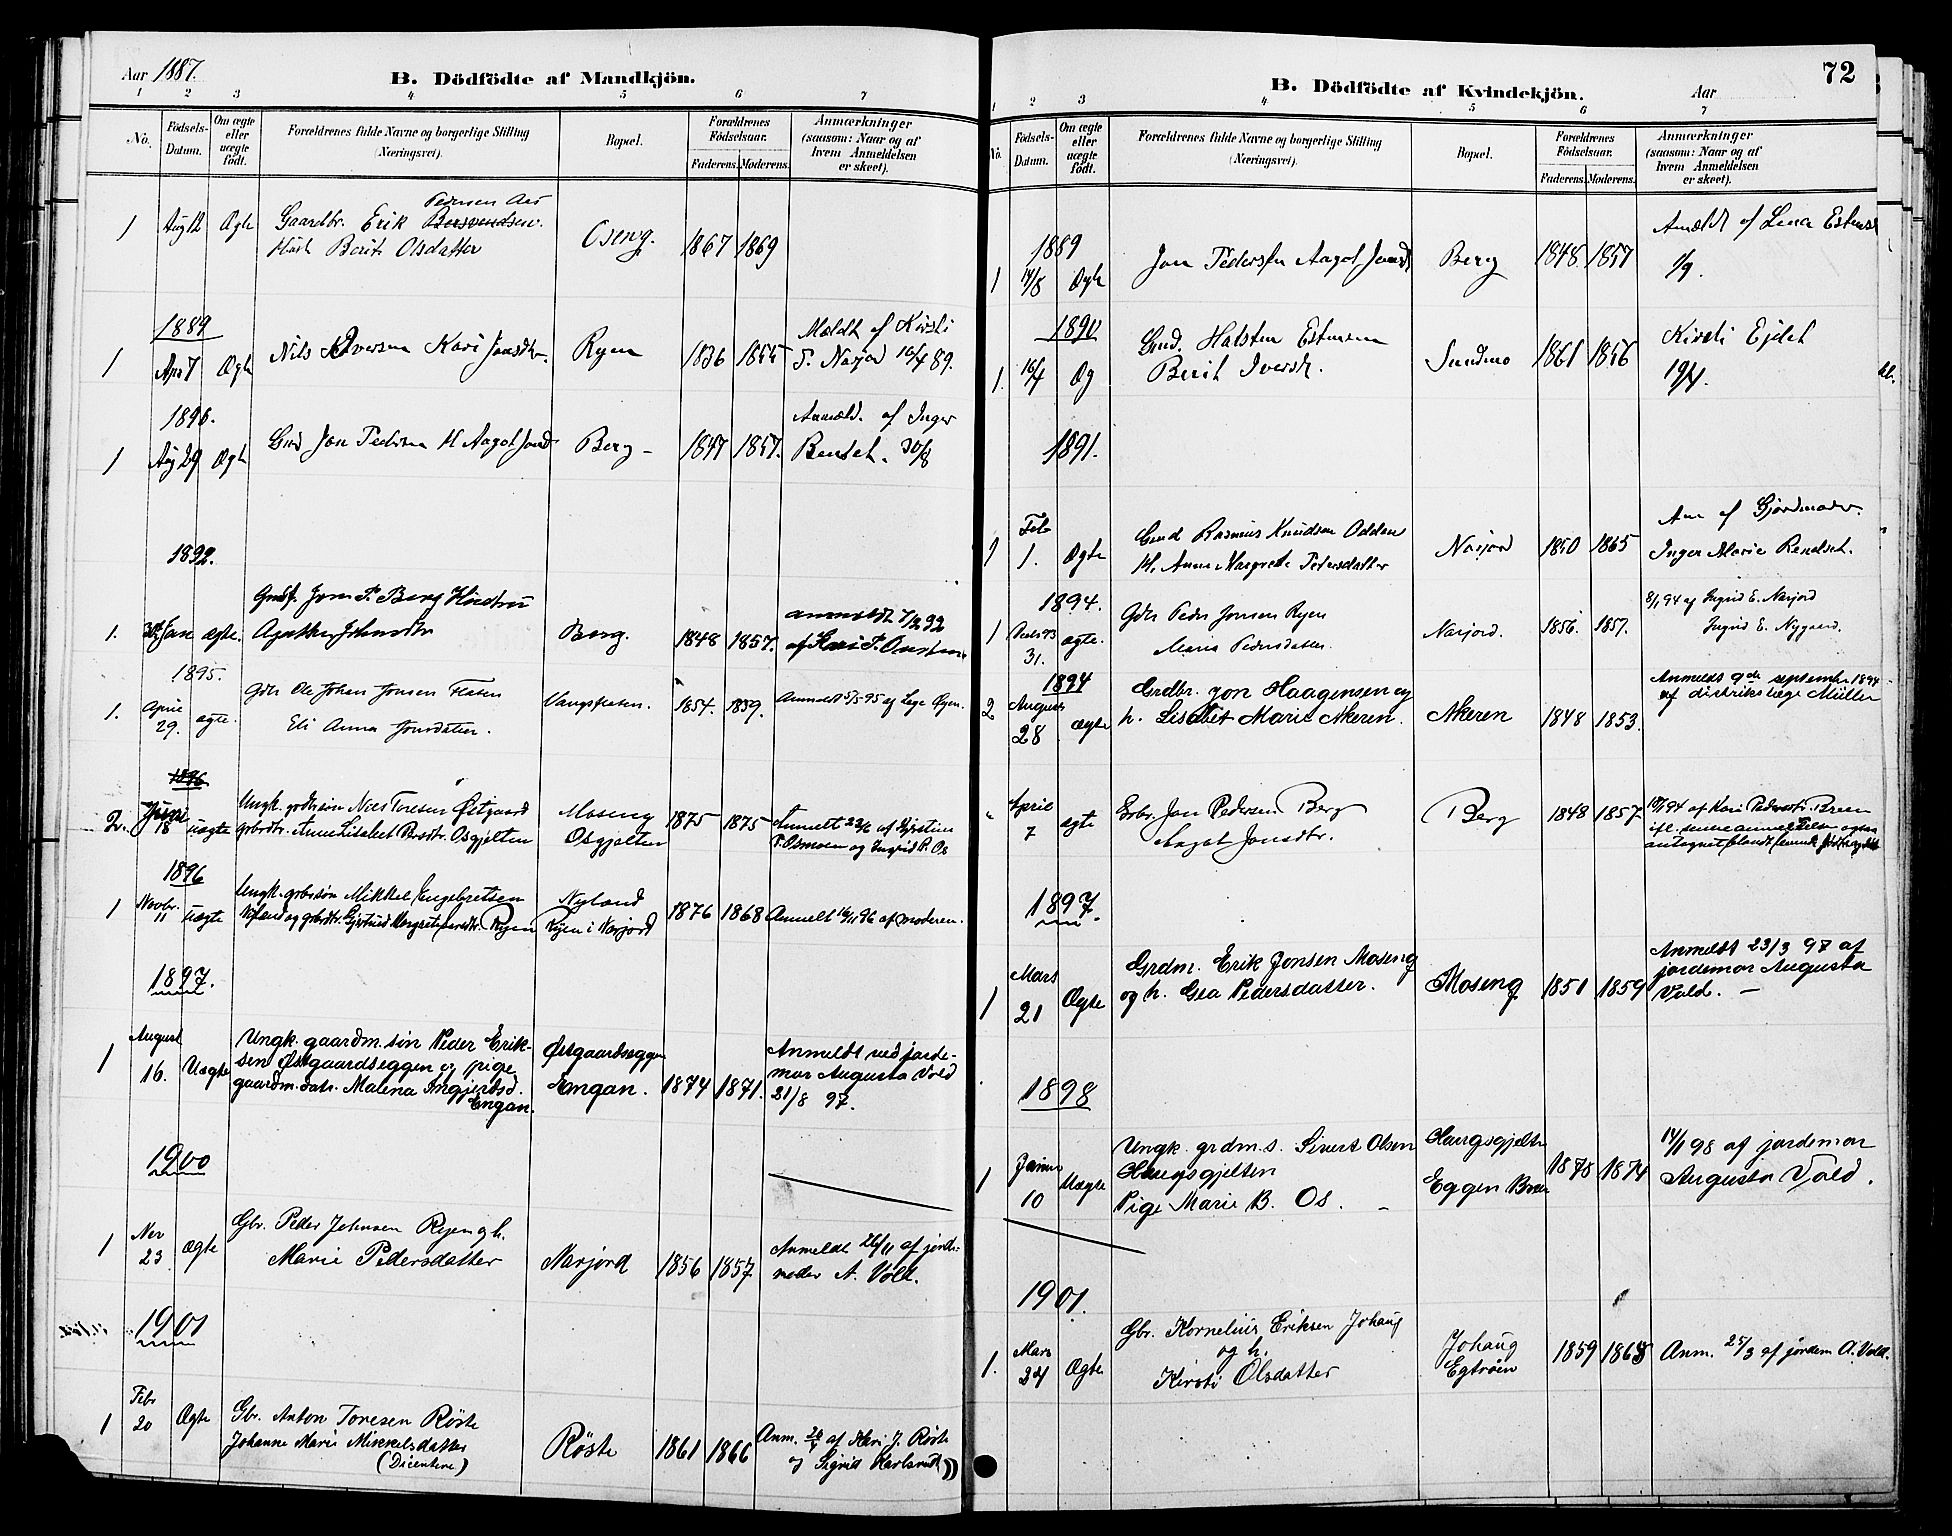 Aar 1887.
B. Dödfödte af Mandkjön.
1 2 3 4 5 6 7
No.
Födsels-Datum.
Om ægte eller uægte födt.
Forældrenes fulde Navne og borgerlige Stilling
(Næringsvei).
Bopæl.
Forældrenes Födselsaar.
Faderens. Moderens.
Anmærkninger
(saasom: Naar og af
hvem Anmeldelsen
er skeet).
Pedersen Aas
1 Aug 12 Ægte Gaardbr. Erik Bersvendsen. Oseng. 1867 1869
Hust Berit Olsdatter
1889
1 Apr 7 Ægte Nils Iversen Kari Jonsdtr. Ryen 1836 1855 Mældt af Kirsti
T. Narjord 10/4 89.
1890.
1 Aug 29 Ægte Gmd Jon Pedersen H Aagot Jonsd Berg 1847 1857. Anmæld. af Inger
Bendset. 30/8
1892.
Jon P. Berg Hustru
1. 30 Jan ægte. Berg. 1848 1857. anmeldt 7/2 92
1895.
1. April 29. ægte. Gdbr Ole Johan Jonsen Floten Vangsfloten. 1854. 1859. Anmeldt 5/5 95 af Læge Øyen.
Eli Anna Jonsdatter.
1896
2. Juni 18 uægte Ungk. grdbrsøn Nils Toresen Østgaard Moseng 1875 1875 Anmelt 22/6 af Kjerstine
grbrdtr. Anne Lisabet Osgjelten Osgjelten P. Osmoen og Ingrid P. Os
1896
1 Novbr. 11 uægte Ungk. grbrsøn Mikkel Engebretsen Nyland 1876 1868 Anmelt 16/11 96 af moderen.
Nyland og grbrdtr. Gjertrud Margrete Ryen Ryen i Narjord
1897.
1 August 16. Uægte Ungk. gaardm. søn Peder Erik- Østgaardseggen 1874 1871. Anmeldt ved jorde-
sen Østgaardseggen og pige Engan. mor Augusta Vold
gaardm. datr. Malena Ingjertsd. 21/8 97.
Engan.
1900
1 Nov 23 Ægte Gbr. Peder Johnsen Ryen og h. Narjord 1856 1857 Anmeldt 26/11 af jorde-
Marie Pedersdatter moder A. Vold.
1901
1 Febr 20 Ægte Gbr. Anton Toresen Røste Røste 1861 1866 Anm. af Kari J. Røste
Johanne Marie Mikkelsdatter og Sigrid
(Dicentere)
72
B. Dödfödte af Kvindekjön.
Aar
1 2 3 4 5 6 7
No.
Födsels-Datum.
Om ægte eller uægte födt.
Forældrenes fulde Navne og borgerlige Stilling
(Næringsvei).
Bopæl.
Forældrenes Födselsaar.
Faderens. Moderens.
Anmærkninger
(saasom: Naar og af
hvem Anmeldelsen
er skeet).
1889
1 14/8 Ægte Jon Pedersen Aagot Jonsd Berg 1848. 1857 Anmeldt af Lena Estensd
1/9.
1890
1. 16/4 Æg Gmd. Halsten Estensen Sundmo 1861 1856 Kirsti Ejdet
Berit Iversdr. 19/4.
1891.
1 Feb 1. Ægte Gmd Rasmus Knudsen Oddan Narjord 1850 1865 Ane af Gjordmoder
H. Anne Margrete Pedersdatter Inger Marie Bendset.
1894.
1 Decbr 93 31. ægte. Gdbr Peder Jonsen Ryen Narjord. 1856. 1857. 8/1 94 af Ingrid E. Narjord
Maria Pedersdatter Ingrid E. Nygaard.
1894
2 August 28 ægte Grdbr. Jon Haagensen og Akeren 1848 1853. Anmelds 9de septembr 1894
h. Lisabet Marie Akeren. af distrikslæge Müller
April 7 ægte Grbr. Jon Pedersen Berg Berg 1848 1857 af Kari Pedersdtr. Breen
Aagot Jonsdtr.
1897.
1 Mars 21 Ægte Grdm. Erik Jonsen Moseng Moseng 1851 1859 Anmeldt 23/3 97 af
og h. Gea Pedersdatter. jordemor Augusta
Vold. —
1898
1 Januar 10 Uægte Ungk. grdm. s. Sivert Olsen Haugsgjelten 1878 1874 14/1 98 af jordemor
Haugsgjelten Eggen Breen Augusta Vold.
Pige Marie B. Os. –
1901.
1. Mars 24 Ægte Gbr. Kornelius Eriksen Johaug Johaug 1859 1865 Anm. 25/3 af jordem A. Vold.
og h. Egtrøen
Kirsti Olsdatter